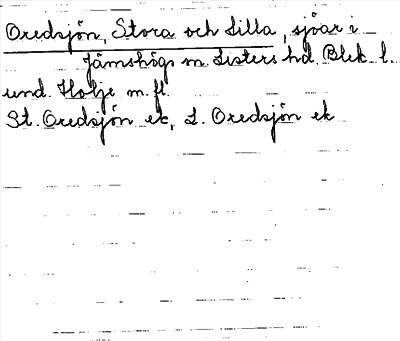 Oredsjön, Stora och Lilla, sjöar i
Jämshögs m. Listers hd. Blek. l.
und. Holje m. fl.
St. Oredsjön ek, L. Oredsjön ek